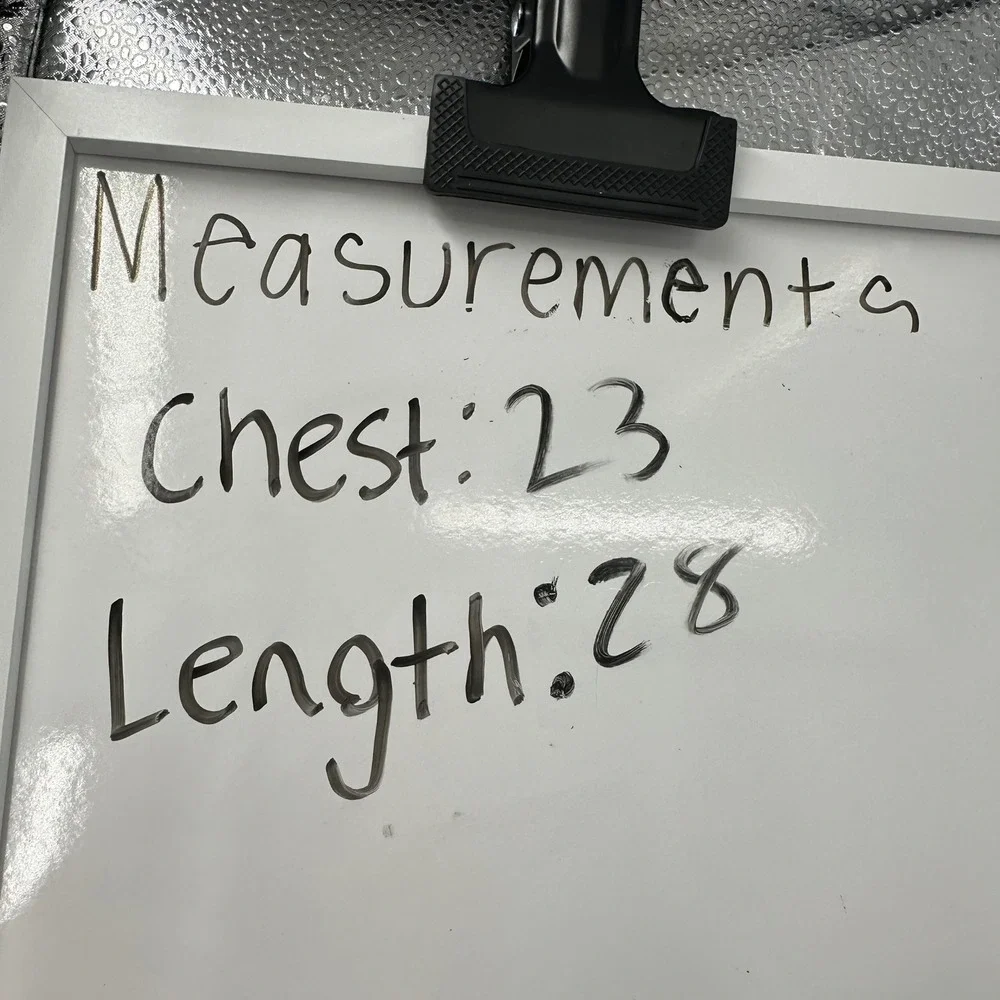 Measurements
Chest: 23
Length: 28